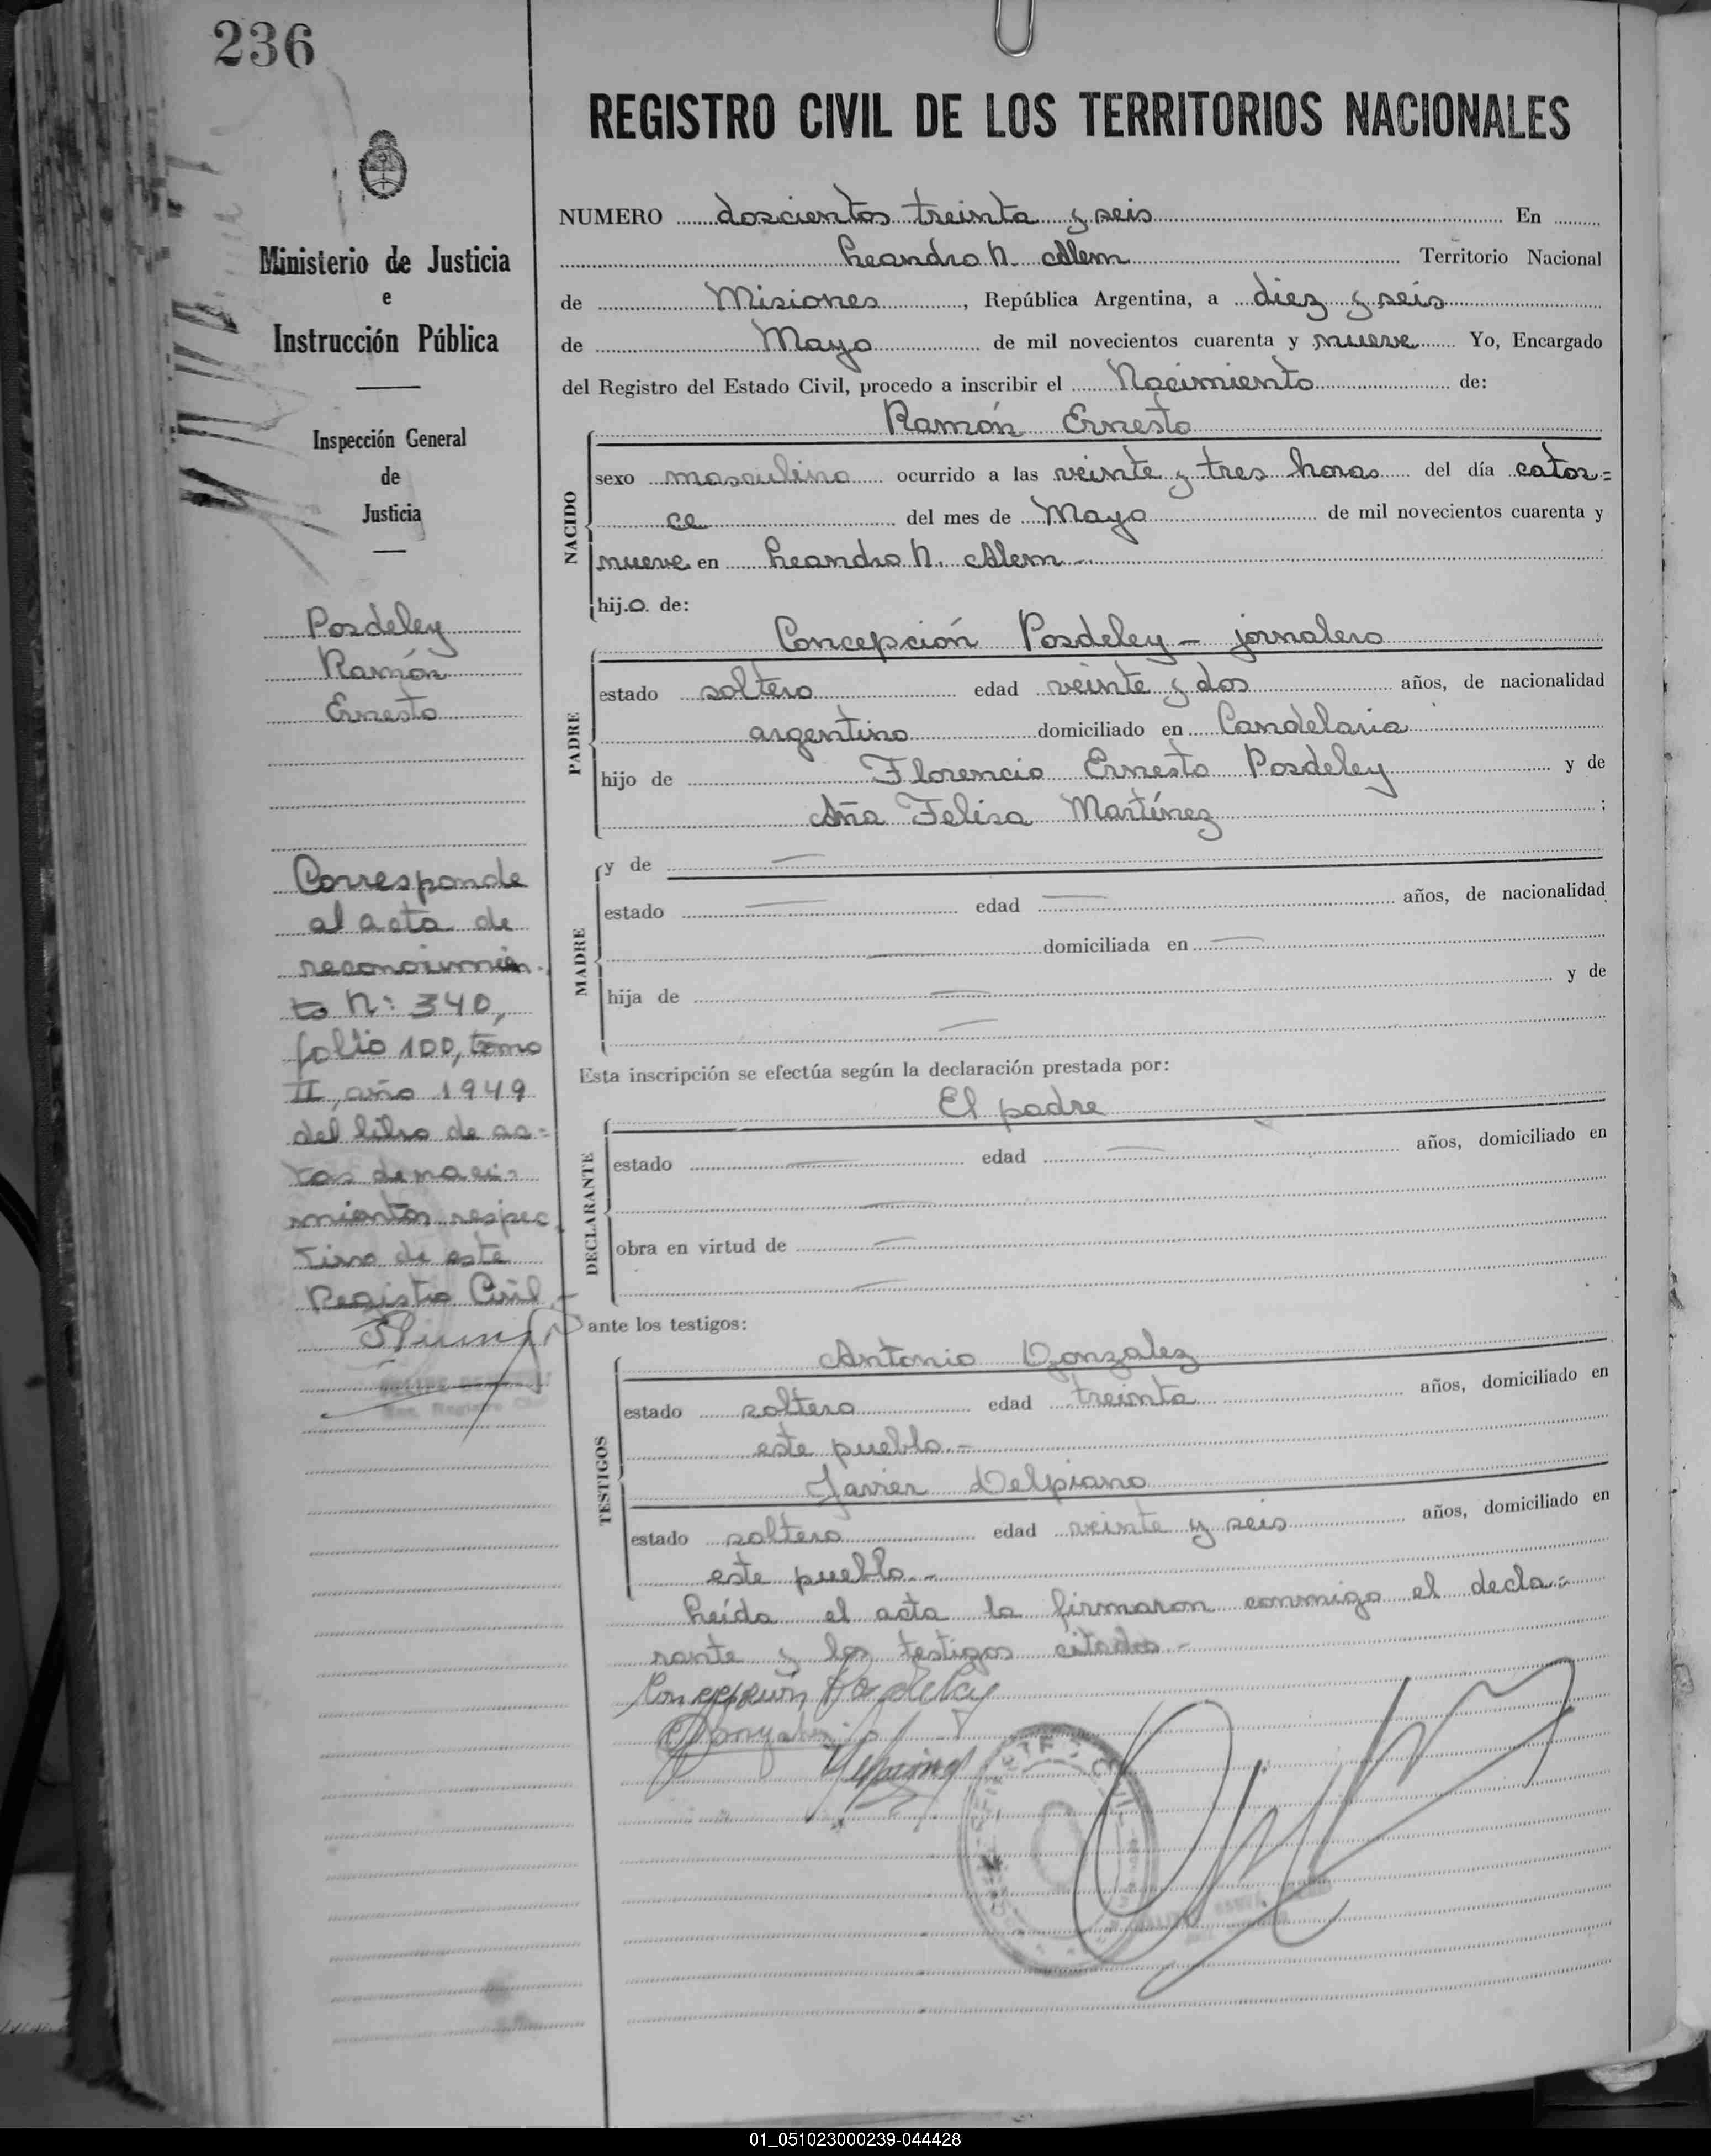 236
REGISTRO CIVIL DE LOS TERRITORIOS NACIONALES
Ministerio de Justicia
e
Instrucción Pública
Inspección General
de
Justicia
Posdeley
Ramón
Ernesto
Corresponde
al acta de
reconocimien-
to N: 340,
folio 100, tomo
II, año 1949
del libro de ac=
tas de naci=
mientos respec
tivo de este
Registro Civil.-
NUMERO doscientos treinta y seis En
Leandro N. Alem Territorio Nacional
de Misiones, República Argentina, a diez y seis
de Mayo de mil novecientos cuarenta y nueve Yo, Encargado
del Registro del Estado Civil, procedo a inscribir el Nacimiento de:
Ramón Ernesto
NACIDO
sexo masculino ocurrido a las veinte y tres horas del día cator=
ce del mes de Mayo de mil novecientos cuarenta y
nueve en Leandro N. Alem -
hijo de:
Concepción Posdeley - jornalero
PADRE
estado soltero edad veinte y dos años, de nacionalidad
argentino domiciliado en Candelaria
hijo de Florencio Ernesto Posdeley y de
Ana Felisa Martínez ;
MADRE
y de —
estado — edad — años, de nacionalidad
— domiciliada en —
hija de — y de
—
Esta inscripción se efectúa según la declaración prestada por:
El padre
DECLARANTE
estado — edad — años, domiciliado en
—
obra en virtud de —
—
ante los testigos:
Antonio Gonzalez
TESTIGOS
estado soltero edad treinta años, domiciliado en
este pueblo.-
Javier Delpiano
estado soltero edad veinte y seis años, domiciliado en
este pueblo.-
Leída el acta la firmaron conmigo el decla=
rante y los testigos citados.-
Concepción Posdeley
01_051023000239-044428